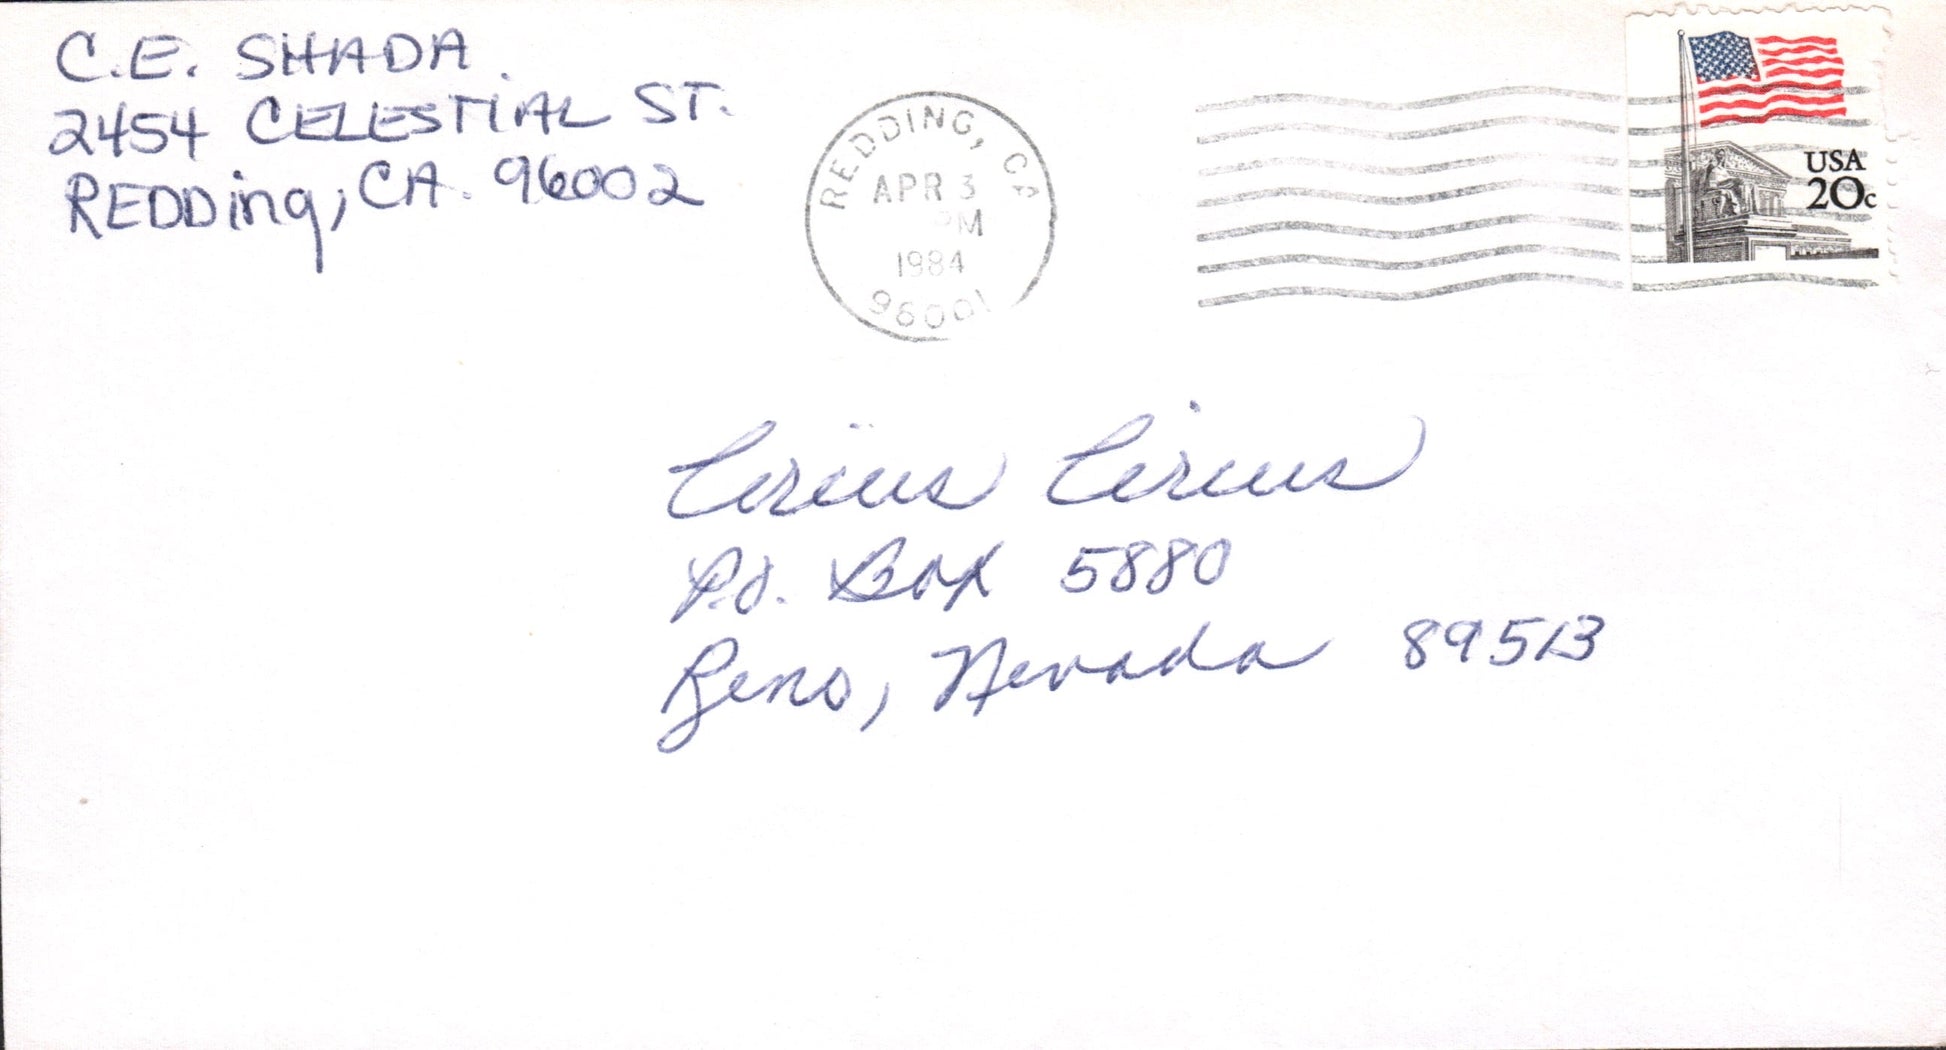 C.E. SHADA
2454 CELESTIAL ST.
REDDing, CA. 96002
REDDING, CA
APR 3
PM
1984
96001
USA
20c
Circus Circus
P.O. Box 5880
Reno, Nevada 89513